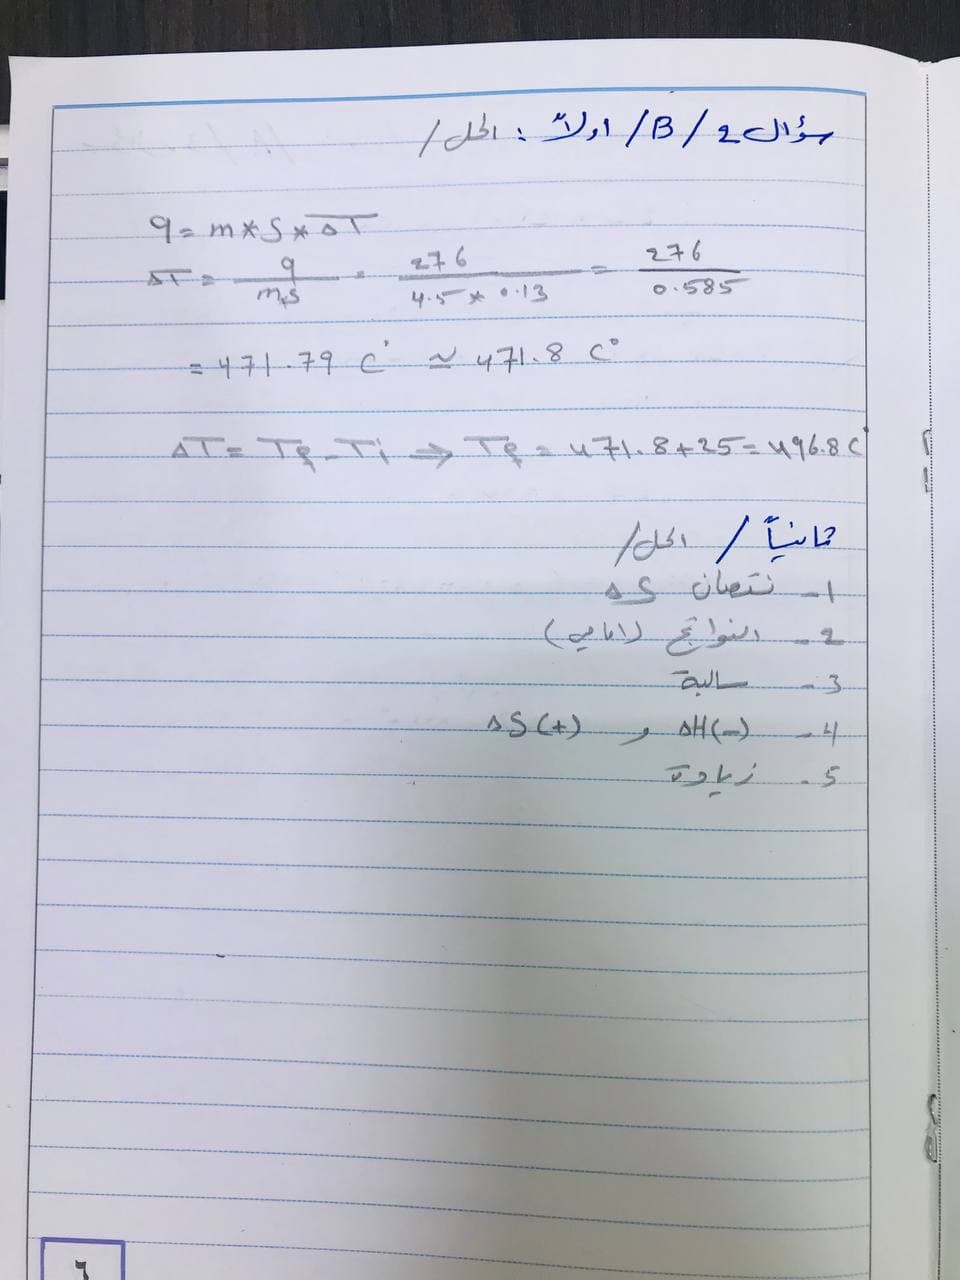 سؤال 2 / B / اولاً : الحل /
q = m * S * ΔT
ΔT = q / m*S = 276 / 4.5 * 0.13 = 276 / 0.585
= 471.79 C° ≈ 471.8 C°
ΔT = Tf - Ti ⇒ Tf = 471.8 + 25 = 496.8 C°
ثانياً / الحل /
1- نقصان ΔS
2- النواتج (امامي)
3- سالبة
4- ΔH(-) و ΔS(+)
5- زيادة
٦